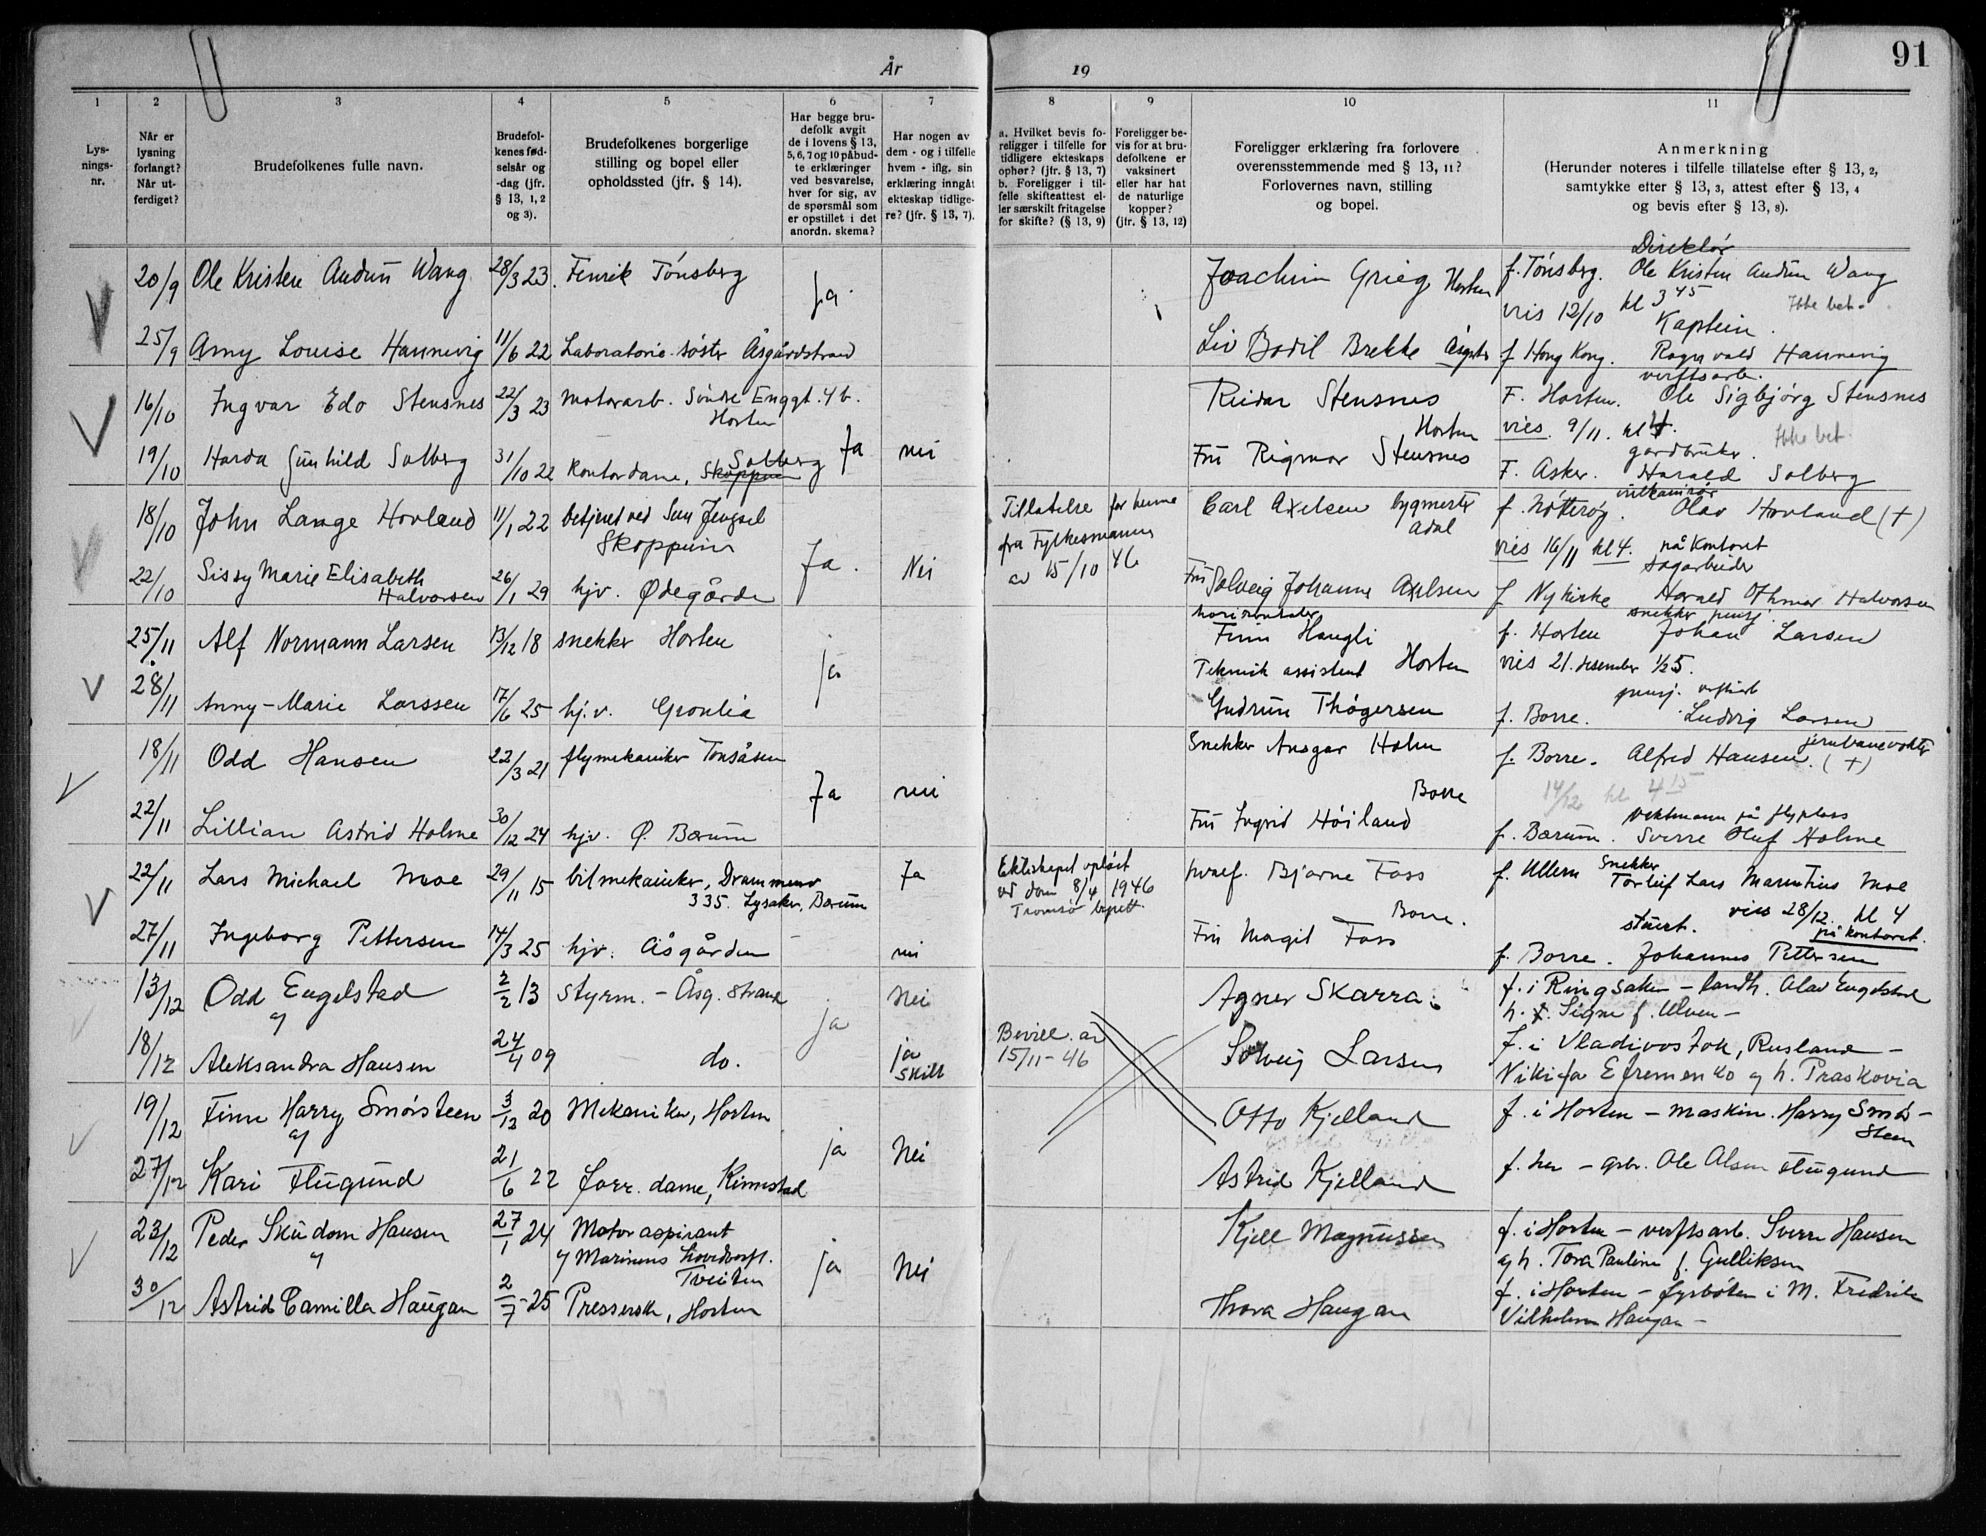 91
År
19
1
2
3
4
5
6
7
8
9
10
11
Lys-
nings-
nr.
Når er
lysning
forlangt?
Når ut-
ferdiget?
Brudefolkenes fulle navn.
Brudefol-
kenes fød-
selsår og
-dag (jfr.
§ 13, 1, 2
og 3).
Brudefolkenes borgerlige
stilling og bopel eller
opholdssted (jfr. § 14).
Har begge bru-
defolk avgit
de i lovens § 13,
5, 6, 7 og 10 påbud-
te erklæringer
ved besvarelse,
hver for sig, av
de spørsmål som
er opstillet i det
anordn. skema?
Har nogen av
dem - og i tilfelle
hvem - iflg. sin
erklæring inngåt
ekteskap tidlige-
re? (jfr. § 13, 7).
a. Hvilket bevis fo-
religger i tilfelle for
tidligere ekteskaps
ophør? (jfr. § 13, 7)
b. Foreligger i til-
felle skifteattest el-
ler særskilt fritagelse
for skifte? (§ 13, 9)
Foreligger be-
vis for at bru-
defolkene er
vaksinert
eller har hat
de naturlige
kopper?
(jfr. § 13, 12)
Foreligger erklæring fra forlovere
overensstemmende med § 13, 11?
Forlovernes navn, stilling
og bopel.
Anmerkning
(Herunder noteres i tilfelle tillatelse efter § 13, 2,
samtykke efter § 13, 3, attest efter § 13, 4
og bevis efter § 13, 8).
20/9 Ole Kristen Audun Wang 28/3 23. Fenrik Tönsberg ja. Joachim Grieg Horten f. Tönsberg. Direktör Ole Kristen Audun Wang
vies 12/10 kl 3 45 Ikke bet.
25/9 Amy Louise Hannevig 11/6 22 Laboratorie-söster Åsgårdstrand Liv Bodil Brekke f Hong Kong. Kaptein Ragnvald Hannevig
16/10 Ingvar Edo Stensnes 22/3 23 motorarb. Söndre Enggt. 4 b. Horten Reidar Stensnes Horten F. Horten. verftsarb. Ole Sigbjørg Stensnes
Ja nei vies. 9/11. kl 4. Ikke bet.
19/10 Harda Gunhild Solberg 31/10 22 Kontordame, Skoppum Solberg Fru Rigmor Stensnes F. Asker. gardbruker. Harald Solberg
18/10 John Lange Hovland 11/1 22 betjent ved Sem fengsel Skoppum Tillatelse for henne fra Fylkesmannen av 15/10 46 Carl Axelsen bygmester Adal f. Nötteröy. Olav Hovland (+)
Ja. Nei vies 16/11 kl 4. på kontoret
22/10 Sissy Marie Elisabeth Halvorsen 26/1 29 hjv. Ødegården Fru Solveig Johanne Axelsen f Nykirke sagarbeider Harald Othmar Halvorsen
25/11 Alf Normann Larsen 13/12 18 snekker Horten Finn Haugli Teknisk assistent Horten f. Horten snekker pensj. Johan Larsen
ja vies 21. desember 1/2 5.
28/11 Anny-Marie Larssen 17/6 25 hj.v. Gronlia Gudrun Thøgersen f. Borre. pensj. Ludvig Larsen
18/11 Odd Hansen 22/3 21 flymekaniker Tonsåsen Snekker Ansgar Holm Borre f. Borre. Alfred Hansen. jernbanevokter (+)
Ja nei 14/12 kl 4 15
22/11 Lillian Astrid Holme 30/12 24 hjv. Ø. Bærum Fru Ingrid Höiland f. Bærum. vektmann på flyplass Sverre Oluf Holme
22/11 Lars Michael Moe 29/11 15 bilmekaniker, Drammensv 335. Lysaker, Bærum Ja Ekteskapet oplöst ved dom 8/4 1946 Tromsö byrett. Bjarne Foss Borre. f. Ullern Snekker Torleif Lars Marentius Moe
vies 28/12. kl 4 på kontoret.
27/11 Ingeborg Pettersen 14/3 25 hjv. Åsgården nei Fru Magit Foss f. Borre. stuert. Johannes Pettersen
13/12 Odd Engelstad 2/2 13 Styrm. - Åsg. strand nei Agner Skarra. f. i Ringsaker - landh. Olav Engelstad
og ja h. Signe f. Ulven -
18/12 Aleksandra Hansen 24/4 09 do. ja skilt Bevill. av 15/11-46 Solveig Larsen f. i Vladivostok, Rusland -
Nikifa Efremenko og h. Praskovia
19/12 Finn Harry Smörsteen 3/12 20 Mekaniker, Horten Otto Kjelland f. i Horten - maskin. Harry Smör-
og ja Nei steen
27/12 Kari Flugund 21/6 22 forr. dame, Kinnestad Astrid Kjelland f. her - arb. Ole Olsen Flugund
23/12 Peder Skudom Hansen 27/1 24 Motoraspirant Kjell Magnussen f. i Horten - verftsarb. Sverre Hansen
og v Marinens Hovedverft. Tveiten ja Nei og h. Tora Pauline f. Gulliksen
30/12 Astrid Camilla Haugan 2/7 25 Presserske, Horten Thora Haugan f. i Horten - fyrböter i M. Fredrik
Vilhelm Haugan -